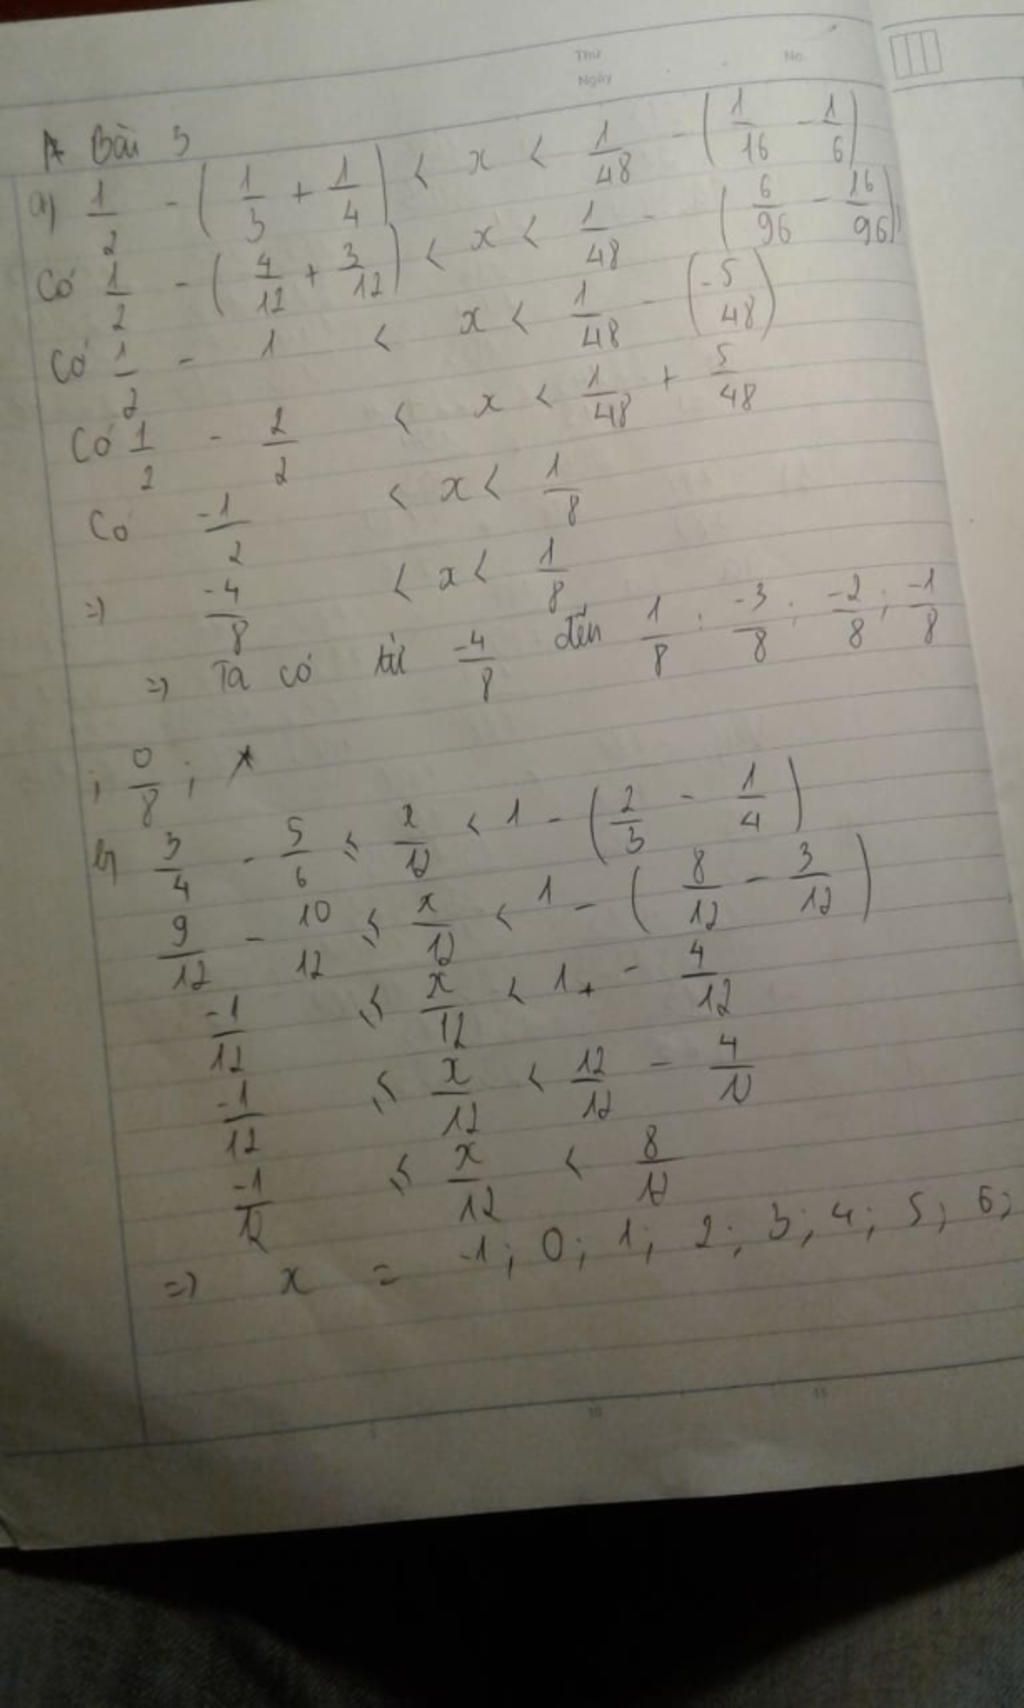 Thứ
Ngày
No.
Bài 3
a) 1/2 - (1/3 + 1/4) < x < 1/48 - (1/16 - 1/6)
Có 1/2 - (4/12 + 3/12) < x < 1/48 - (6/96 - 16/96)
Có 1/2 - 1 < x < 1/48 - (-5/48)
Có 1/2 - 2/2 < x < 1/48 + 5/48
Có -1/2 < x < 1/8
=> -4/8 < x < 1/8
=> Ta có từ -4/8 đến 1/8 : -3/8 ; -2/8 ; -1/8
; 0/8 ;
b) 3/4 - 5/6 ≤ x/12 < 1 - (2/3 - 1/4)
9/12 - 10/12 ≤ x/12 < 1 - (8/12 - 3/12)
-1/12 ≤ x/12 < 1 - 4/12
-1/12 ≤ x/12 < 12/12 - 4/12
-1/12 ≤ x/12 < 8/12
=> x = -1; 0; 1; 2; 3; 4; 5; 6;